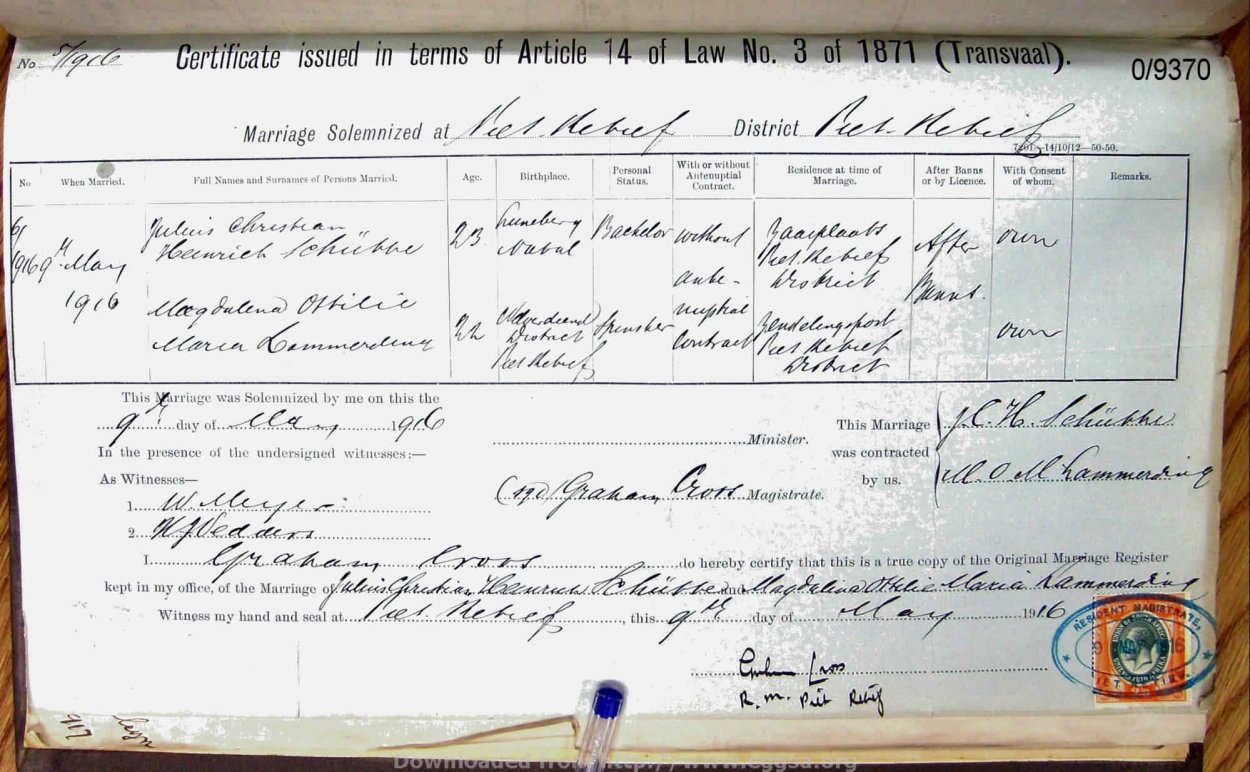 No 5/1916 Certificate issued in terms of Article 14 of Law No. 3 of 1871 (Transvaal). 0/9370
Marriage Solemnized at Piet Retief District Piet Retief
14/10/12—50-50.
No When Married. Full Names and Surnames of Persons Married. Age. Birthplace. Personal Status. With or without Antenuptial Contract. Residence at time of Marriage. After Banns or by Licence. With Consent of whom. Remarks.
Julius Christian
Heinrich Schübbe 23 Luneberg Natal Bachelor without Zaaiplaats Piet Retief District After own
1916 9th May
1916
ante-nuptial contract Banns.
Magdalena Ottilie
Maria Lammerding 22 District Piet Retief Spinster Zendelingspost Piet Retief District own
This Marriage was Solemnized by me on this the
9th day of May 1916
Minister.
This Marriage was contracted by us. J. C. H. Schübbe
M O M Lammerding
In the presence of the undersigned witnesses:—
As Witnesses—
(sgd) Graham Cross Magistrate.
1. W. Meyer
2. Vedders
I Graham Cross do hereby certify that this is a true copy of the Original Marriage Register
kept in my office, of the Marriage of Julius Christian Heinrich Schübbe and Magdalena Ottilie Maria Lammerding
Witness my hand and seal at Piet Retief, this 9th day of May 1916
RESIDENT MAGISTRATE,
Graham Cross
R. M. Piet Retief
917
Downloaded from http://www.eggsa.org